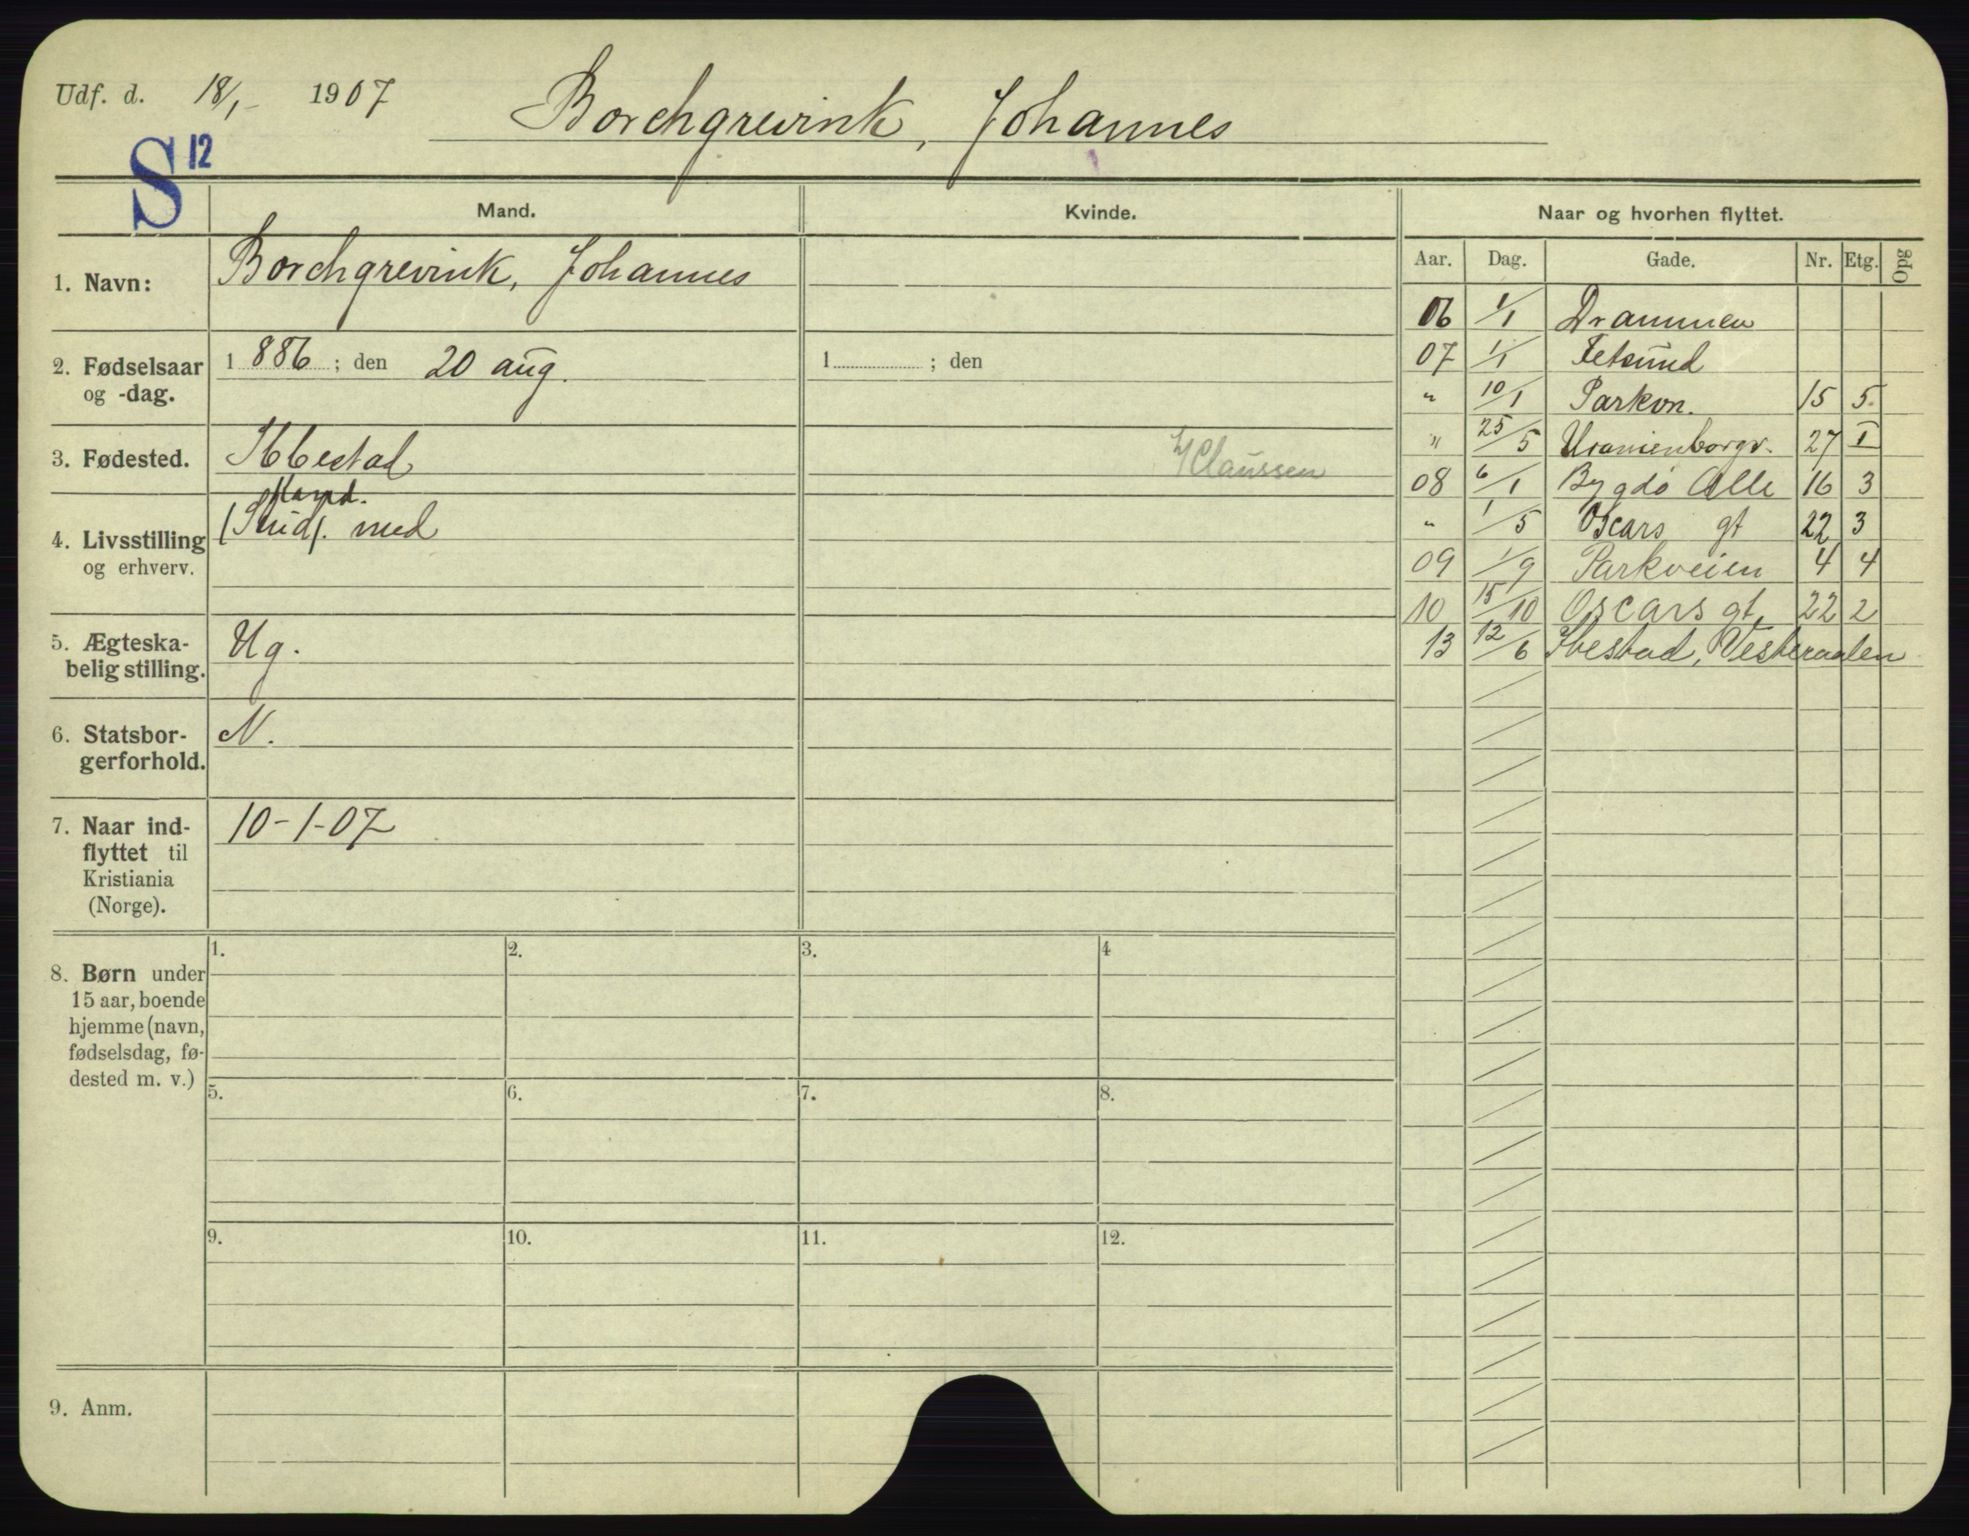 Udf. d. 18/1- 1907
Borchgrevink, Johannes
S 12
Mand.
Kvinde.
Naar og hvorhen flyttet.
1. Navn:
Borchgrevink, Johannes
2. Fødselsaar og -dag.
1 886 ; den 20 aug.
1 ; den
3. Fødested.
Ibbestad
Claussen
4. Livsstilling og erhverv.
(Stud). med
5. Ægteska-
belig stilling.
Ug.
6. Statsbor-
gerforhold.
N.
7. Naar ind-
flyttet til
Kristiania
(Norge).
10-1-07
8. Børn under
15 aar, boende
hjemme (navn,
fødselsdag, fø-
dested m. v.)
1. 2. 3. 4
5. 6. 7. 8.
9. 10. 11. 12.
9. Anm.
Aar. Dag. Gade. Nr. Etg. Opg
06 1/1 Drammen
07 1/1 Fetsund
" 10/1 Parkvn. 15 5.
" 25/5 Uranienborgv. 27 I
08 6/1 Bygdø Alle 16 3
" 1/5 Oscars gt 22 3
09 1/9 Parkveien 4 4
10 15/10 Oscars gt. 22 2
13 12/6 Ibestad, Vesteraalen